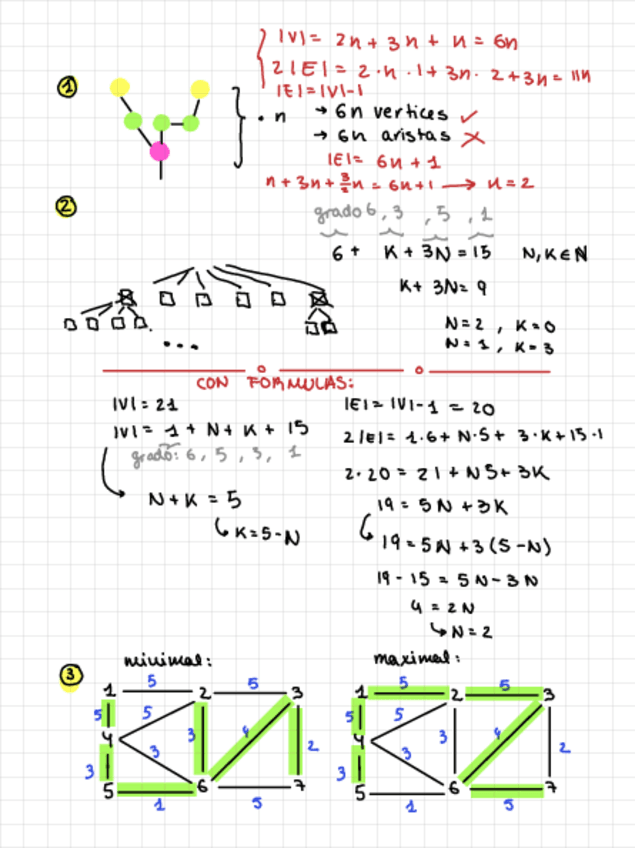 |V| = 2n + 3n + n = 6n
2|E| = 2·n·1 + 3n·2 + 3n = 11n
|E| = |V|-1
1
·n
→ 6n vertices ✓
→ 6n aristas ✗
|E| = 6n + 1
n + 3n + 3/2 n = 6n+1 → n = 2
2
grado 6, 3, 5, 1
6 + K + 3N = 15 N, K ∈ N
K + 3N = 9
N = 2, K = 0
N = 1, K = 3
...
CON FORMULAS:
|V| = 21
|V| = 1 + N + K + 15
grado: 6, 5, 3, 1
N + K = 5
↳ K = 5 - N
|E| = |V|-1 = 20
2|E| = 1·6 + N·5 + 3·K + 15·1
2·20 = 21 + N5 + 3K
19 = 5N + 3K
19 = 5N + 3(5-N)
19 - 15 = 5N - 3N
4 = 2N
↳ N = 2
3
minimal:
1 5 2 5 3
5 5
4 3 3 4 2
3
5 1 6 5 7
maximal:
1 5 2 5 3
5 5
4 3 3 4 2
3
5 1 6 5 7